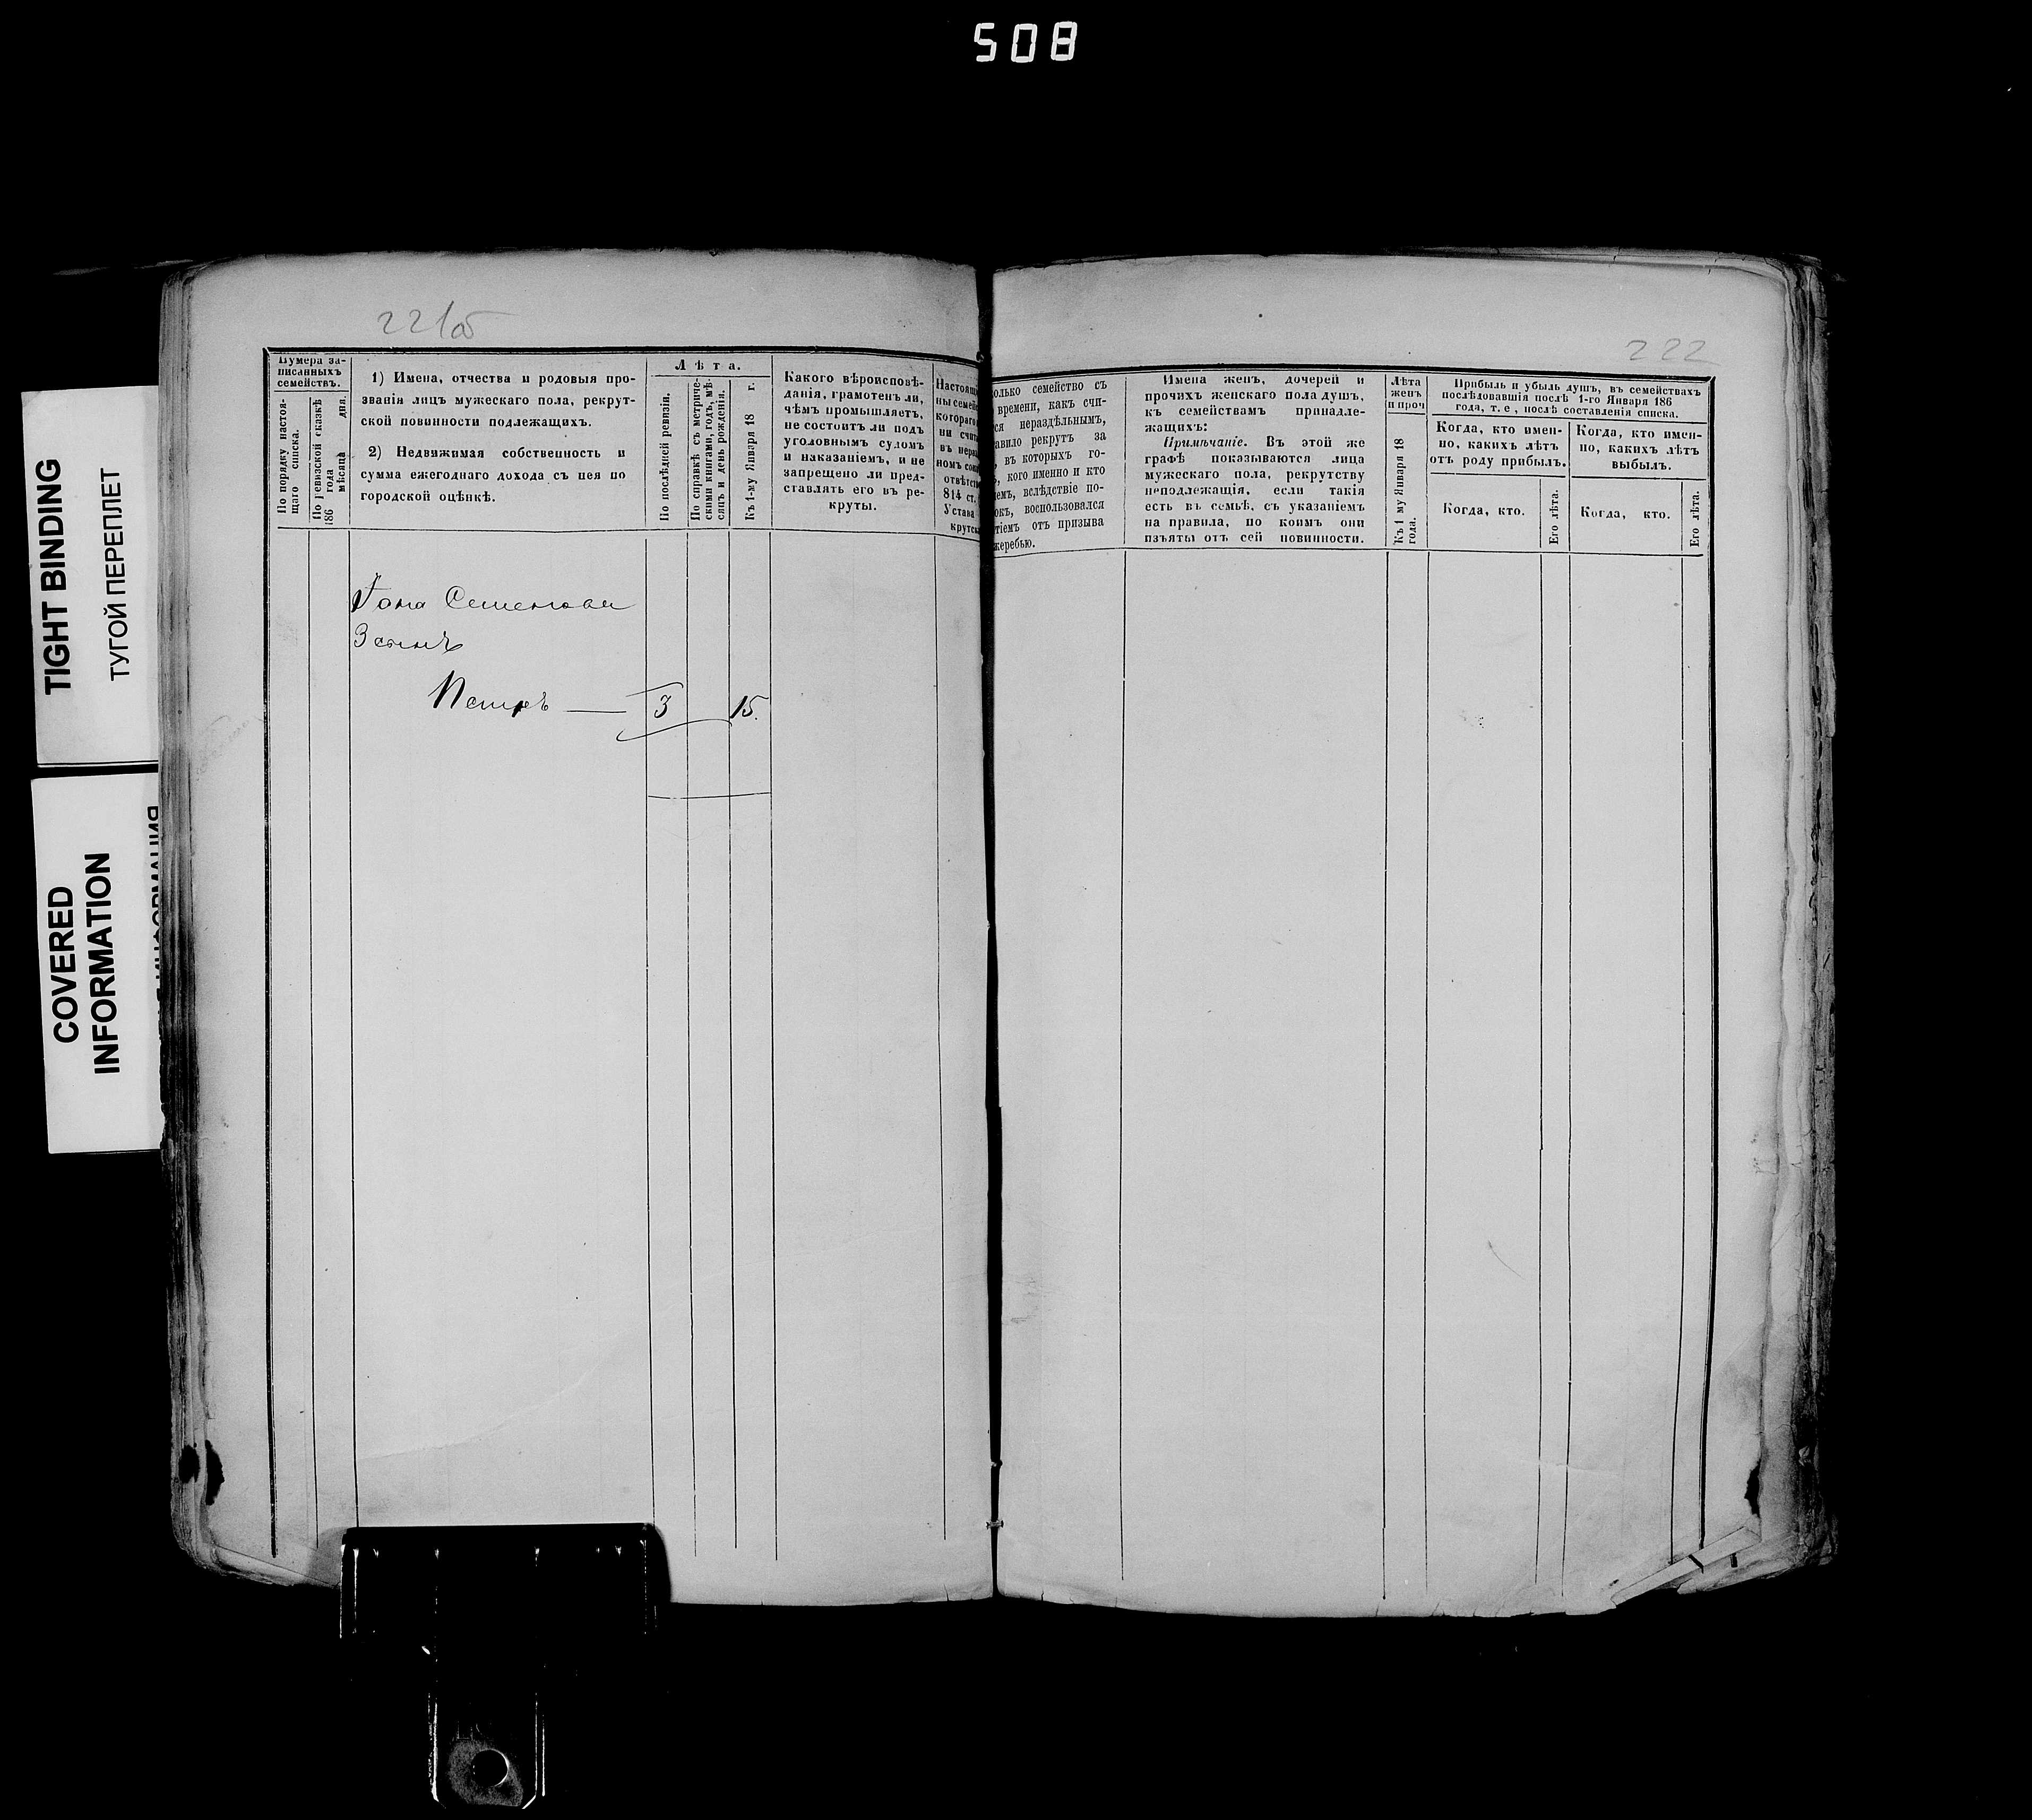 508
TIGHT BINDING
ТУГОЙ ПЕРЕПЛЕТ
COVERED
INFORMATION
221об
Нумера за-
писанныхъ
семействъ.
По порядку настоя-
щаго списка.
По ревизской сказкѣ
186 года мѣсяца дня.
1) Имена, отчества и родовыя про-
званія лицъ мужескаго пола, рекрут-
ской повинности подлежащихъ.
2) Недвижимая собственность и
сумма ежегоднаго дохода съ нея по
городской оцѣнкѣ.
Лѣта.
По послѣдней ревизіи.
По справкѣ съ метриче-
скими книгами, годъ, мѣ-
сяцъ и день рожденія.
Къ 1-му Января 18 г.
Какого вѣроисповѣ-
данія, грамотенъ ли,
чѣмъ промышляетъ,
не состоитъ ли подъ
уголовнымъ судомъ
и наказаніемъ, и не
запрещено ли пред-
ставлять его въ ре-
круты.
Настоящ
ны семей
котораго
ни счит
въ нераз
номъ сос
отвѣтств
814 ст.
Устава
крутск
Семенова
3 сынъ
Петръ — 3 15.
222
олько семейство съ
времени, какъ счи-
ся нераздѣльнымъ,
авило рекрутъ за
, въ которыхъ го-
ъ, кого именно и кто
емъ, вслѣдствіе по-
окъ, воспользовался
тіемъ отъ призыва
жеребью.
Имена женъ, дочерей и
прочихъ женскаго пола душъ,
къ семействамъ принадле-
жащихъ:
Примѣчаніе. Въ этой же
графѣ показываются лица
мужескаго пола, рекрутству
неподлежащія, если такія
есть въ семьѣ, съ указаніемъ
на правила, по коимъ они
изъяты отъ сей повинности.
Лѣта
женъ
и проч
Къ 1 му Января 18
года.
Прибыль и убыль душъ, въ семействахъ
послѣдовавшія послѣ 1-го Января 186
года, т. е., послѣ составленія списка.
Когда, кто имен-
но, какихъ лѣтъ
отъ роду прибылъ.
Когда, кто имен-
но, какихъ лѣтъ
выбылъ.
Когда, кто.
Его лѣта.
Когда, кто.
Его лѣта.